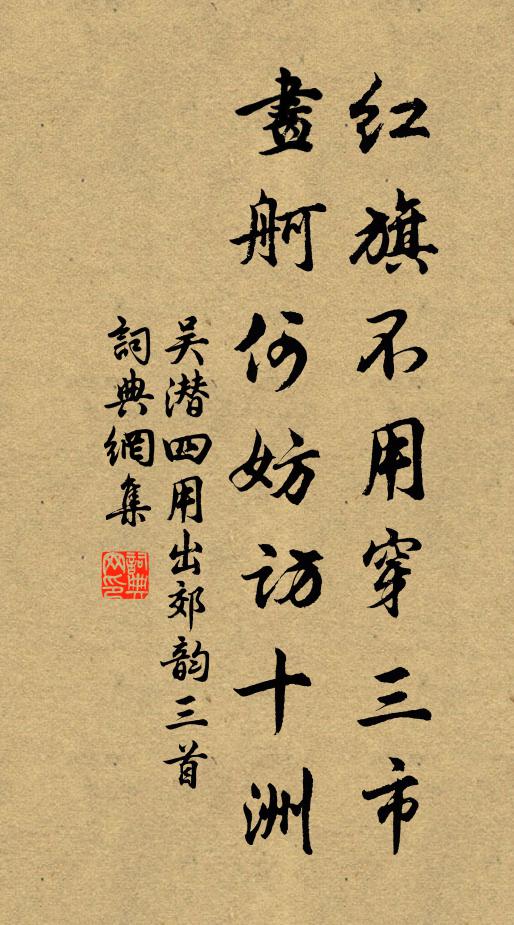 红旗不用穿三市
畫舸何妨访十洲
吴潜四用出郊韵三首
詞典網集
詞典网印